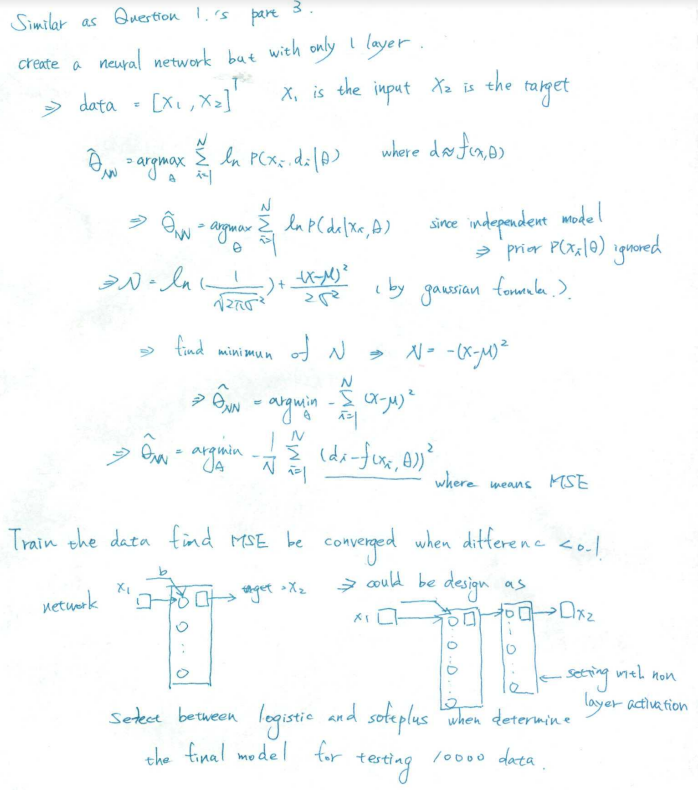 Similar as Question 1.'s part 3.
create a neural network but with only 1 layer.
⇒ data = [X₁, X₂]ᵀ X₁ is the input X₂ is the target
θ̂_NN = argmax_θ Σ_{i=1}^N ln P(xᵢ, dᵢ|θ) where d≈f(x,θ)
⇒ θ̂_NN = argmax_θ Σ_{i=1}^N ln P(dᵢ|xᵢ, θ) since independent model
⇒ prior P(xᵢ|θ) ignored
⇒ N = ln(1/√(2πσ²)) + -(x-μ)²/2σ² (by gaussian formula.).
⇒ find minimun of N ⇒ N = -(x-μ)²
⇒ θ̂_NN = argmin_θ - Σ_{i=1}^N (x-μ)²
⇒ θ̂_NN = argmin_θ - 1/N Σ_{i=1}^N (dᵢ-f(xᵢ, θ))²
where means MSE
Train the data find MSE be converged when differenc <0.1
network X₁ b target = X₂ ⇒ could be design as
x₁ x₂
setting with non
layer activation
Select between logistic and softplus when determine
the final model for testing 10000 data.